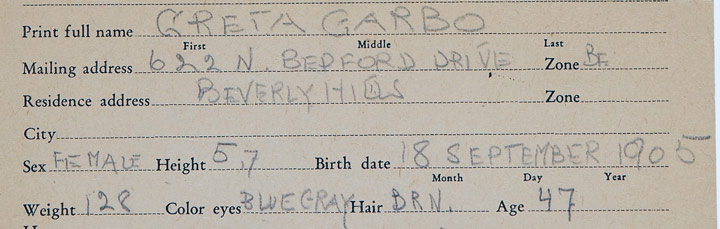 Print full name GRETA GARBO
First Middle Last
Mailing address 622 N. BEDFORD DRIVE Zone BE
Residence address BEVERLY HILLS Zone
City
Sex FEMALE Height 5,7 Birth date 18 SEPTEMBER 1905
Month Day Year
Weight 128 Color eyes BLUEGRAY Hair BRN. Age 47